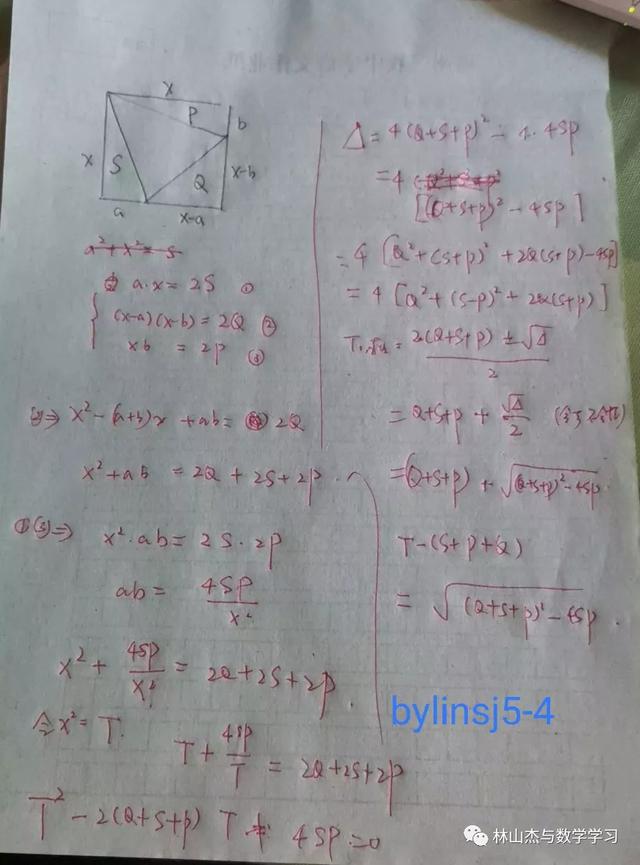 x
P
b
x
S
Q
x-b
a
x-a
a²+x²=S
a·x=2S ①
(x-a)(x-b)=2Q ②
xb = 2P ③
②⇒ x²-(a+b)x+ab= 2Q
x²+ab = 2Q+2S+2P.
①③⇒ x²·ab=2S·2P
ab= 4SP/x²
x²+ 4SP/x² = 2Q+2S+2P.
令x²=T.
T+ 4SP/T = 2Q+2S+2P
T²-2(Q+S+P) T+ 4SP=0
Δ=4(Q+S+P)²-4·4SP
=4
[(Q+S+P)²-4SP]
=4[Q²+(S+P)²+2Q(S+P)-4SP]
=4[Q²+(S-P)²+2Q(S+P)]
= 2(Q+S+P)±√Δ/2
=Q+S+P+ √Δ/2
=(Q+S+P)+√(Q+S+P)²-4SP
T-(S+P+Q)
=√(Q+S+P)²-4SP.
bylinsj5-4
林山杰与数学学习